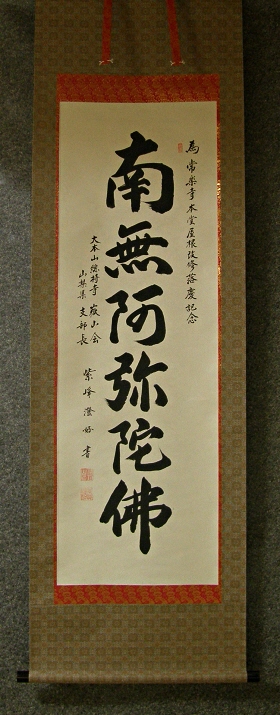 為常楽寺本堂屋根改修落慶記念
南無阿弥陀佛
大本山總持寺 嶽山会
山梨県 支部長
紫峰澄好書